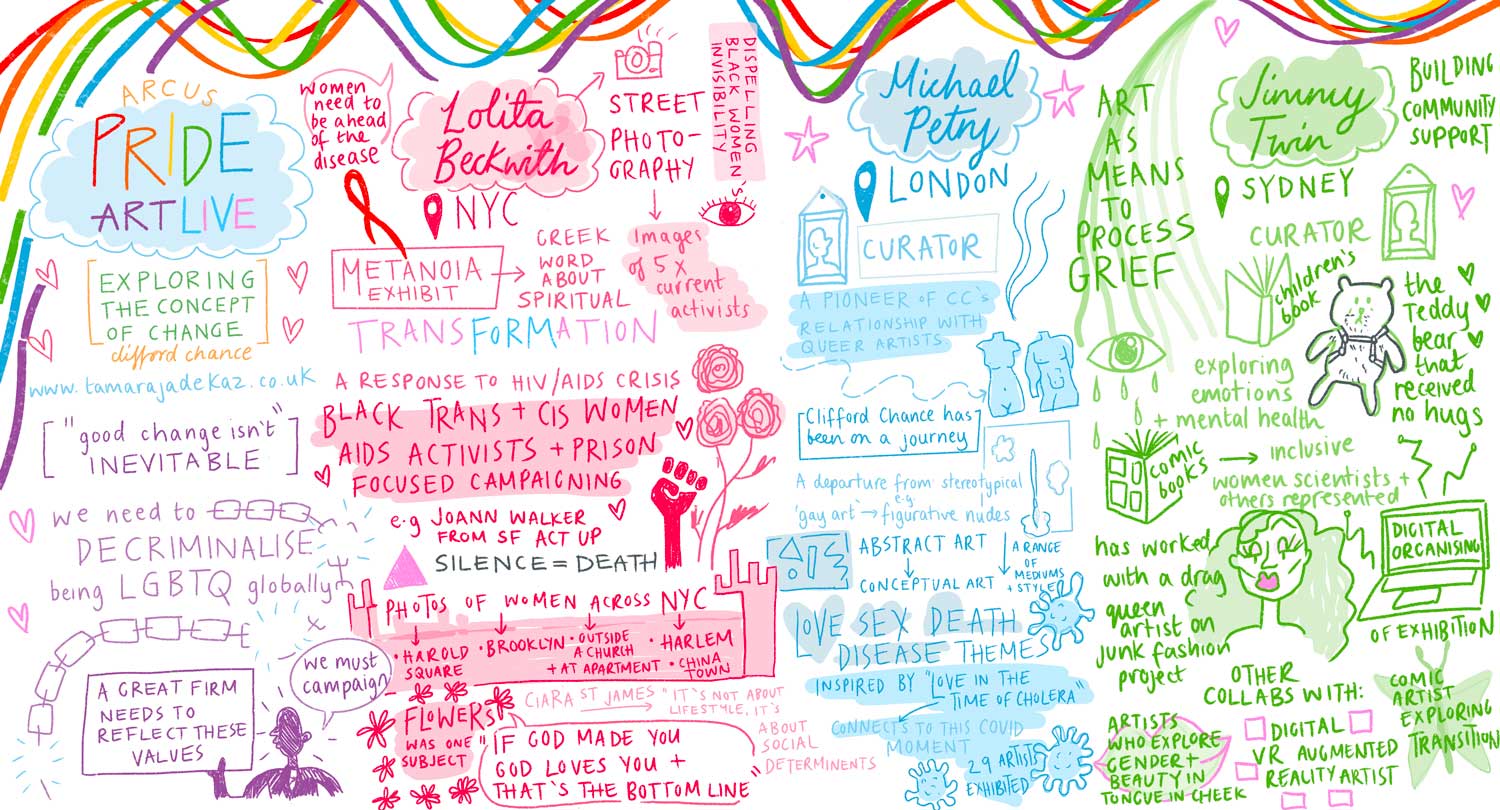 ARCUS
PRIDE
ART LIVE
EXPLORING
THE CONCEPT
OF CHANGE
clifford chance
www.tamarajadekaz.co.uk
"good change isn't"
INEVITABLE
we need to
DECRIMINALISE
being LGBTQ globally
we must
campaign
A GREAT FIRM
NEEDS TO
REFLECT THESE
VALUES
Women
need to
be ahead
of the
disease
Lolita
Beckwith
NYC
STREET
PHOTO-
GRAPHY
DISPELLING
BLACK WOMEN'S
INVISIBILITY
Images
of 5 x
current
activists
METANOIA
EXHIBIT
GREEK
WORD
ABOUT
SPIRITUAL
TRANSFORMATION
A RESPONSE TO HIV/AIDS CRISIS
BLACK TRANS + CIS WOMEN
AIDS ACTIVISTS + PRISON
FOCUSED CAMPAIGNING
e.g JOANN WALKER
FROM SF ACT UP
SILENCE = DEATH
PHOTOS OF WOMEN ACROSS NYC
• HAROLD
SQUARE
• BROOKLYN
• OUTSIDE
A CHURCH
+ AT APARTMENT
• HARLEM
• CHINA
TOWN
FLOWERS
WAS ONE
SUBJECT
CIARA ST JAMES
"IT'S NOT ABOUT
LIFESTYLE, IT'S
ABOUT
SOCIAL
DETERMINENTS
"IF GOD MADE YOU
GOD LOVES YOU +
THAT'S THE BOTTOM LINE"
Michael
Petry
LONDON
CURATOR
A PIONEER OF CC'S
RELATIONSHIP WITH
QUEER ARTISTS
Clifford Chance has
been on a journey
A departure from stereotypical
e.g.
'gay art' → figurative nudes
ABSTRACT ART
CONCEPTUAL ART
A RANGE
OF
MEDIUMS
+ STYLES
LOVE SEX DEATH
DISEASE THEMES
INSPIRED BY "LOVE IN THE
TIME OF CHOLERA"
CONNECTS TO THIS COVID
MOMENT
29 ARTISTS
EXHIBITED
ART
AS
MEANS
TO
PROCESS
GRIEF
Jimmy
Twin
SYDNEY
CURATOR
BUILDING
COMMUNITY
SUPPORT
children's
book
the
Teddy
bear
that
received
no hugs
exploring
emotions
+ mental health
comic
books
inclusive
women scientists +
others represented
has worked
with a drag
queen
artist on
junk fashion
project
DIGITAL
ORGANISING
OF EXHIBITION
OTHER
COLLABS WITH:
ARTISTS
WHO EXPLORE
GENDER +
BEAUTY IN
TONGUE IN CHEEK
DIGITAL
VR AUGMENTED
REALITY ARTIST
COMIC
ARTIST
EXPLORING
TRANSITION